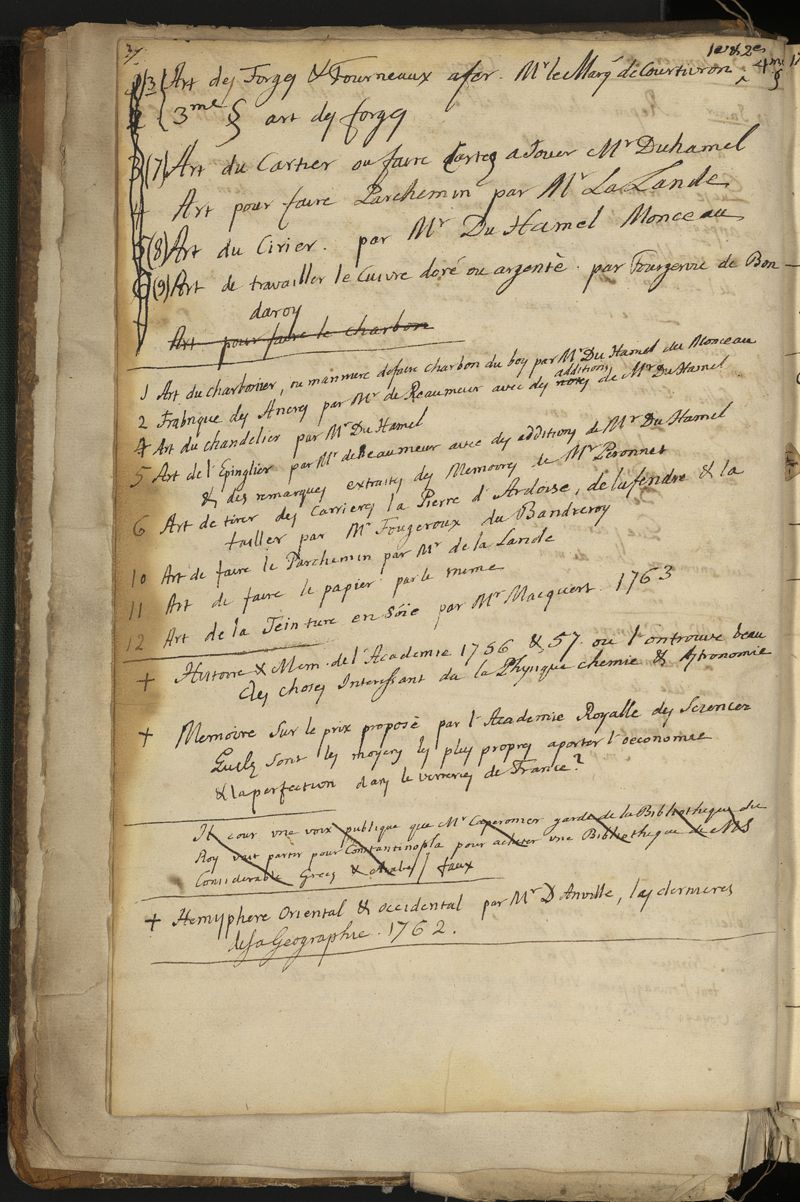 37
1er & 2e 4me §
(3) Art des Forges & Fourneaux a fer. Mr le Marq. de Courtivron
3me § art des forges
3 (7) Art du Cartier ou faire Cartes a Jouer Mr Duhamel
4 Art pour faire Parchemin par Mr La Lande
5 (8) Art du Cirier. par Mr Du Hamel Monceau
6 (9) Art de travailler le Cuivre doré ou argentè. par Fougeroue de Bon-
daroy
Art pour faire le charbon
1 Art du charbonier, ou manniere de faire charbon du boy par Mr Du Hamel du Monceau
2 Frabrique des Ancres par Mr de Reaumeur avec des additions de Mr Du Hamel
4 Art du chandelier par Mr Du Hamel
5 Art de l'Epinglier par Mr de Reaumeur avec des additions de Mr Du Hamel
& des remarques extraits des Memoires de Mr Peronnet
6 Art de tirer des Carrieres la Pierre d'Ardoise, de la fendre & la
tailler par Mr Fougeroux du Bandreroy
10 Art de faire le Parchemin par Mr de la Lande
11 Art de faire le papier par le meme
12 Art de la Teinture en Sóie par Mr Macquert. 1763
+ Histoire & Mem. de l'Academie 1756 & 57. ou l'on trouve beau
des choses Interessant da la Physique chemie & Astronomie
+ Memoire sur le prix proposè par l'Academie Royalle des Sciences
Quels sont les moyens les plus propres aporter l'oeconomie
& la perfection dans le verreries de France?
It cour une voix publique que Mr Caperonier garde de la Bibliotheque du
Roy vait partir pour Constantinopla pour acheter une Bibliotheque de MSS
Considerable Grecs & Arabes / faux
+ Hemisphere Oriental & occidental par Mr D'Anville, les dernieres
de sa Geographie. 1762.